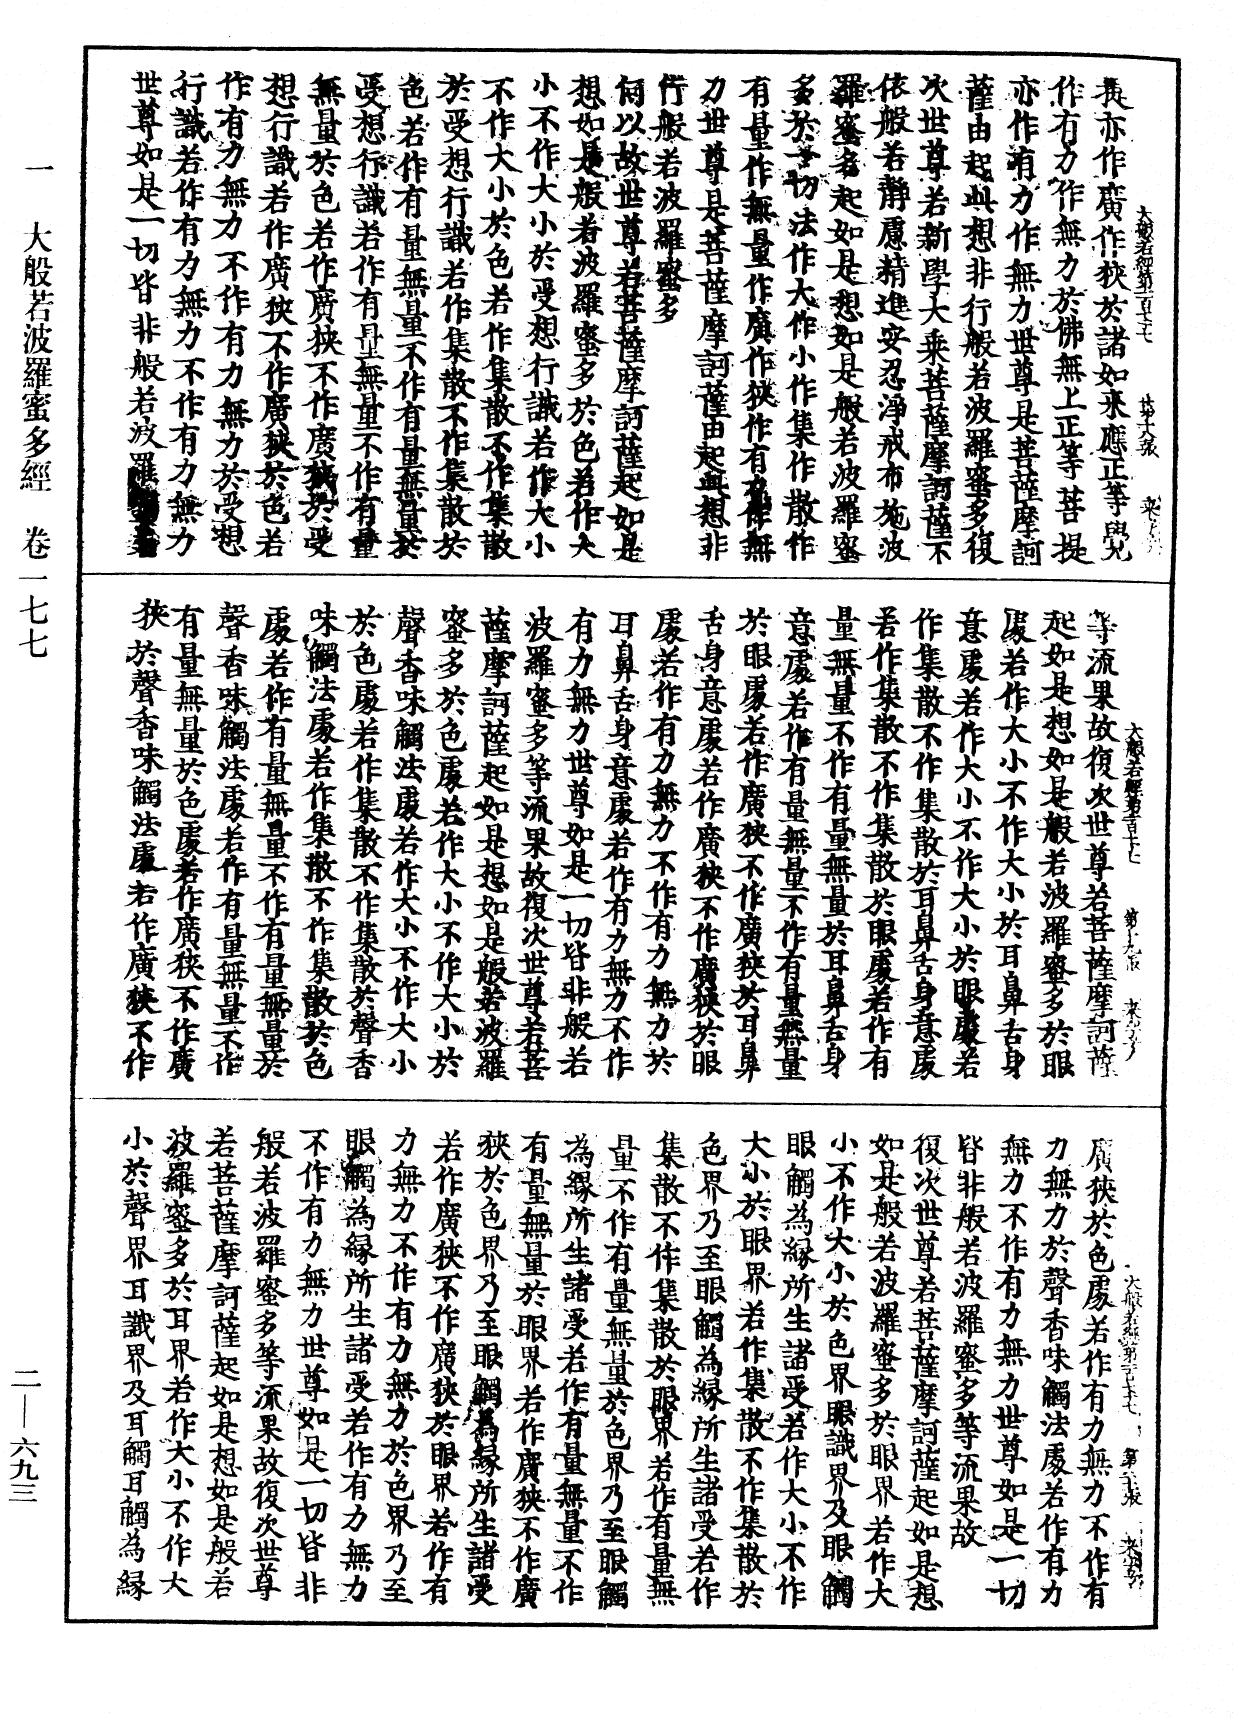 一 大般若波羅蜜多經 卷一七七
二—六九三
提亦作廣作狹於諸如來應正等覺
作有力作無力於佛無上正等菩提
亦作有力作無力世尊是菩薩摩訶
薩由起此想非行般若波羅蜜多復
次世尊若新學大乘菩薩摩訶薩不
依般若靜慮精進安忍淨戒布施波
羅蜜多起如是想如是般若波羅蜜
多於一切法作大作小作集作散作
有量作無量作廣作狹作有力作無
力世尊是菩薩摩訶薩由起此想非
行般若波羅蜜多
何以故世尊若菩薩摩訶薩起如是
想如是般若波羅蜜多於色若作大
小不作大小於受想行識若作大小
不作大小於色若作集散不作集散
於受想行識若作集散不作集散於
色若作有量無量不作有量無量於
受想行識若作有量無量不作有量
無量於色若作廣狹不作廣狹於受
想行識若作廣狹不作廣狹於色若
作有力無力不作有力無力於受想
行識若作有力無力不作有力無力
世尊如是一切皆非般若波羅蜜多
等流果故復次世尊若菩薩摩訶薩
起如是想如是般若波羅蜜多於眼
處若作大小不作大小於耳鼻舌身
意處若作大小不作大小於眼處若
作集散不作集散於耳鼻舌身意處
若作集散不作集散於眼處若作有
量無量不作有量無量於耳鼻舌身
意處若作有量無量不作有量無量
於眼處若作廣狹不作廣狹於耳鼻
舌身意處若作廣狹不作廣狹於眼
處若作有力無力不作有力無力於
耳鼻舌身意處若作有力無力不作
有力無力世尊如是一切皆非般若
波羅蜜多等流果故復次世尊若菩
薩摩訶薩起如是想如是般若波羅
蜜多於色處若作大小不作大小於
聲香味觸法處若作大小不作大小
於色處若作集散不作集散於聲香
味觸法處若作集散不作集散於色
處若作有量無量不作有量無量於
聲香味觸法處若作有量無量不作
有量無量於色處若作廣狹不作廣
狹於聲香味觸法處若作廣狹不作
廣狹於色處若作有力無力不作有
力無力於聲香味觸法處若作有力
無力不作有力無力世尊如是一切
皆非般若波羅蜜多等流果故
復次世尊若菩薩摩訶薩起如是想
如是般若波羅蜜多於眼界若作大
小不作大小於色界眼識界及眼觸
眼觸為緣所生諸受若作大小不作
大小於眼界若作集散不作集散於
色界乃至眼觸為緣所生諸受若作
集散不作集散於眼界若作有量無
量不作有量無量於色界乃至眼觸
為緣所生諸受若作有量無量不作
有量無量於眼界若作廣狹不作廣
狹於色界乃至眼觸為緣所生諸受
若作廣狹不作廣狹於眼界若作有
力無力不作有力無力於色界乃至
眼觸為緣所生諸受若作有力無力
不作有力無力世尊如是一切皆非
般若波羅蜜多等流果故復次世尊
若菩薩摩訶薩起如是想如是般若
波羅蜜多於耳界若作大小不作大
小於聲界耳識界及耳觸耳觸為緣